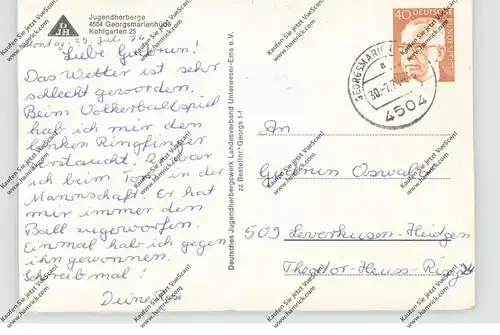 Jugendherberge
4504 Georgsmarienhütte
Kohlgarten 25
Montag, 29. Juli 74
Liebe Gudrun!
Das Wetter ist sehr
schlecht geworden.
Beim Völkerballspiel
hab ich mir den
linken Ringfinger
verstaucht. war
ich beim Tom in der
Mannschaft. Er hat
mir immer den
Ball zugeworfen.
Einmal hab ich gegen
ihn gewonnen.
Schreib mal!
Deine
Deutsches Jugendherbergswerk, Landesverband Unterweser-Ems e.V.
zz Bestellnr.: Georgs 1-f
40
DEUTSCHE BUNDESPOST
GEORGSMARIENHÜTTE
30.-7.74
4504
An
Gudrun Oswald
509 Leverkusen-
Theodor-Heuss-Ring
Kaufen Sie jetzt VueScan!
www.hamrick.com